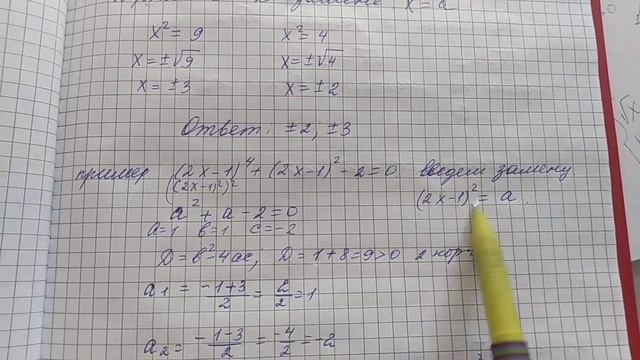 замене x² = a
x² = 9 x² = 4
x = ±√9 x = ±√4
x = ±3 x = ±2
Ответ: ±2; ±3
пример (2x-1)⁴ + (2x-1)² - 2 = 0 введем замену
((2x-1)²)² (2x-1)² = a.
a² + a - 2 = 0
a=1 b=1 c=-2
D = b² - 4ac, D = 1 + 8 = 9 > 0 2 кор
a₁ = -1+3/2 = 2/2 = 1
a₂ = -1-3/2 = -4/2 = -2